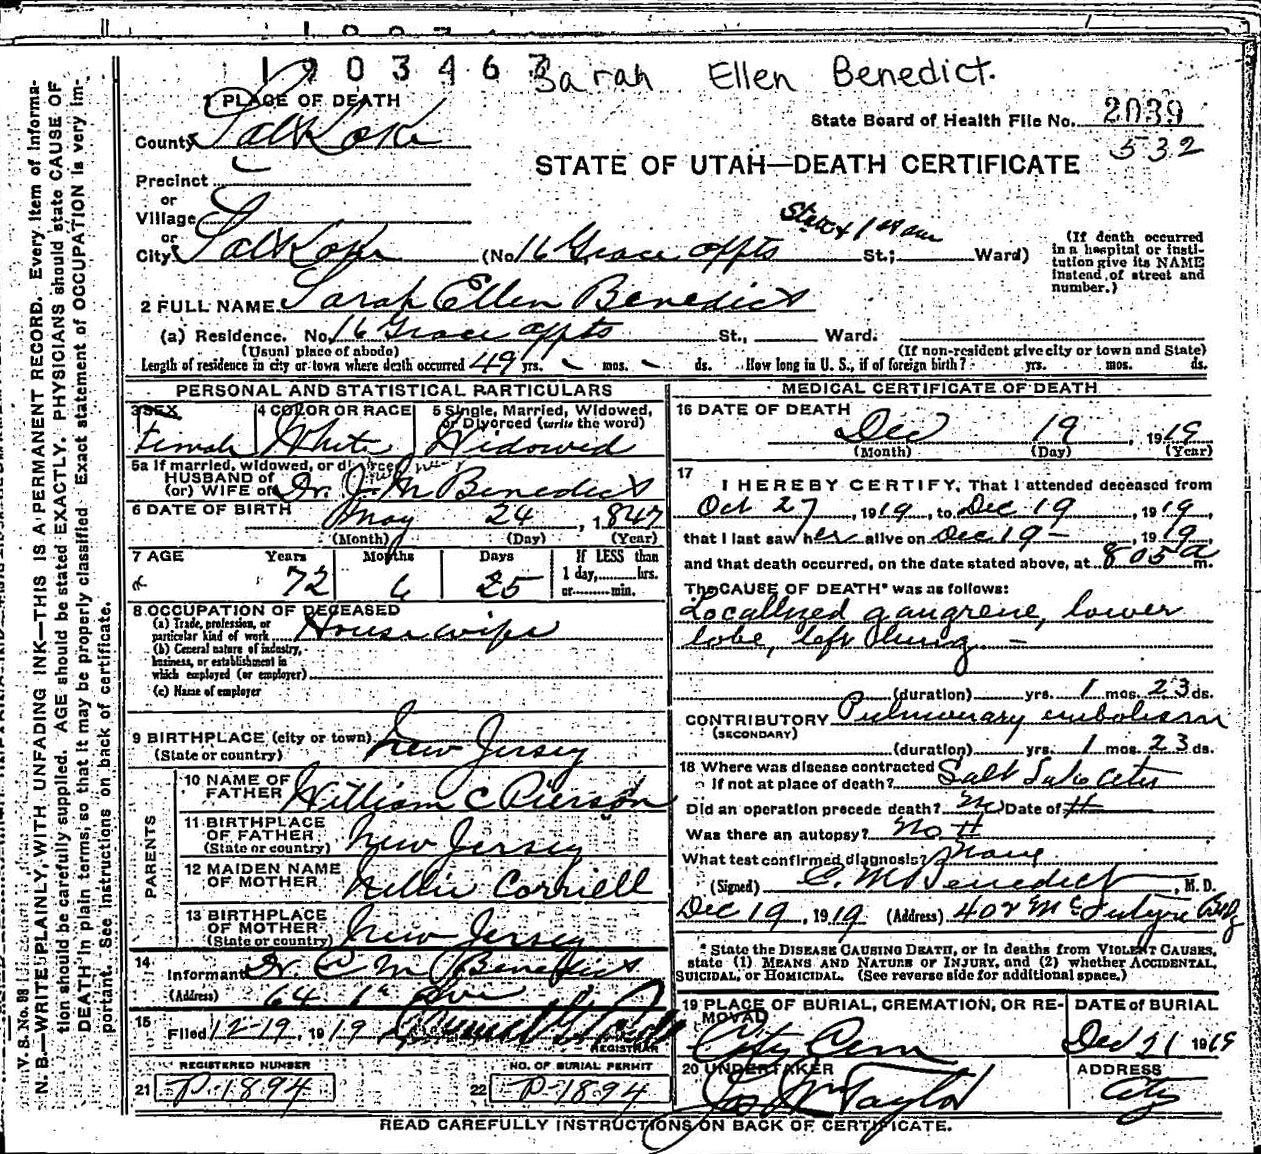 1903467
Sarah Ellen Benedict.
1 PLACE OF DEATH
State Board of Health File No. 2039
County Salt Lake
532
STATE OF UTAH—DEATH CERTIFICATE
Precinct
or
Village
State & 1st ave
or
City Salt Lake (No. 16 Grace appts St.; Ward)
(If death occurred in a hospital or institution give its NAME instead of street and number.)
2 FULL NAME Sarah Ellen Benedict
(a) Residence. No. 16 Grace appts St., Ward.
(Usual place of abode) (If non-resident give city or town and State)
Length of residence in city or town where death occurred 49 yrs. - mos. - ds. How long in U. S., if of foreign birth? yrs. mos. ds.
PERSONAL AND STATISTICAL PARTICULARS
3 SEX Female
4 COLOR OR RACE White
5 Single, Married, Widowed, or Divorced (write the word) Widowed
5a If married, widowed, or divorced
HUSBAND of
(or) WIFE of Dr. J. M. Benedict
6 DATE OF BIRTH May 24, 1847
(Month) (Day) (Year)
7 AGE Years 72 Months 6 Days 25
If LESS than 1 day, hrs. or min.
8 OCCUPATION OF DECEASED
(a) Trade, profession, or particular kind of work Housewife
(b) General nature of industry, business, or establishment in which employed (or employer)
(c) Name of employer
9 BIRTHPLACE (city or town) New Jersey
(State or country)
PARENTS
10 NAME OF FATHER William C Pierson
11 BIRTHPLACE OF FATHER (State or country) New Jersey
12 MAIDEN NAME OF MOTHER Nellie Corriell
13 BIRTHPLACE OF MOTHER (State or country) New Jersey
14 Informant Dr. C. M. Benedict
(Address) 64 1st Ave
15 Filed 12-19, 1919
REGISTRAR
REGISTERED NUMBER
21 P-1894
NO. OF BURIAL PERMIT
22 P-1894
MEDICAL CERTIFICATE OF DEATH
16 DATE OF DEATH
Dec 19, 1919
(Month) (Day) (Year)
17 I HEREBY CERTIFY, That I attended deceased from
Oct 27, 1919, to Dec 19, 1919,
that I last saw her alive on Dec 19-, 1919,
and that death occurred, on the date stated above, at 805 a m.
The CAUSE OF DEATH* was as follows:
Localized gangrene, lower
lobe, left lung. -
(duration) yrs. 1 mos. 23 ds.
CONTRIBUTORY Pulmonary embolism
(SECONDARY)
(duration) yrs. 1 mos. 23 ds.
18 Where was disease contracted Salt Lake City
If not at place of death?
Did an operation precede death? No Date of
Was there an autopsy? No
What test confirmed diagnosis? None
(Signed) C. M. Benedict, M. D.
Dec 19, 1919 (Address) 402 McIntyre Bldg
* State the DISEASE CAUSING DEATH, or in deaths from VIOLENT CAUSES,
state (1) MEANS AND NATURE OF INJURY, and (2) whether ACCIDENTAL,
SUICIDAL, or HOMICIDAL. (See reverse side for additional space.)
19 PLACE OF BURIAL, CREMATION, OR REMOVAL City Cem
DATE of BURIAL Dec 21 1919
20 UNDERTAKER Jos Wm Taylor
ADDRESS City
READ CAREFULLY INSTRUCTIONS ON BACK OF CERTIFICATE.
V. S. No. 98
N. B.—WRITE PLAINLY, WITH UNFADING INK—THIS IS A PERMANENT RECORD. Every item of informa-
tion should be carefully supplied. AGE should be stated EXACTLY. PHYSICIANS should state CAUSE OF
DEATH in plain terms, so that it may be properly classified. Exact statement of OCCUPATION is very im-
portant. See instructions on back of certificate.